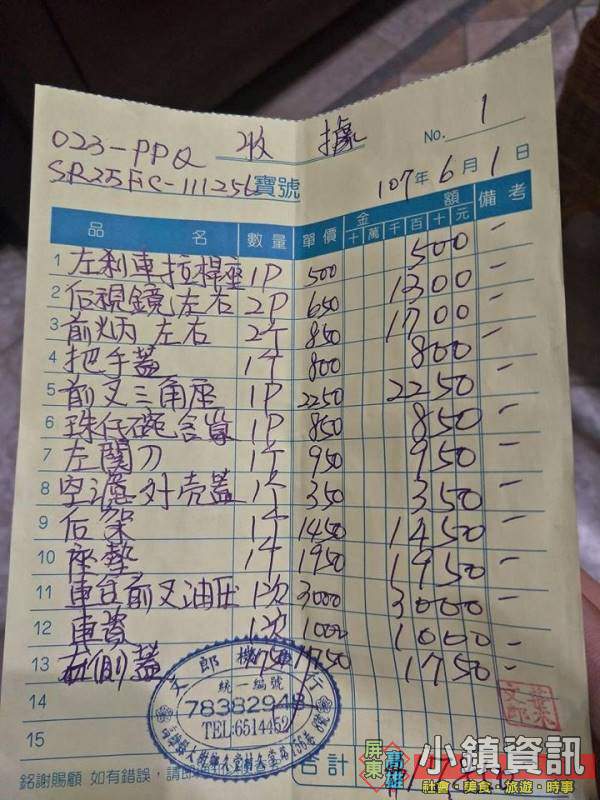 023-PPQ 收據 No. 1
SR25FC-111256 寶號 107年6月1日
品名 數量 單價 金額 備考
十萬千百十元
1 左剎車拉桿座 1P 500 500 -
2 后視鏡 左右 2P 650 1300 -
3 前灿 左右 2个 850 1700
4 把手蓋 1个 800 800 -
5 前叉三角座 1P 2250 2250 -
6 珠仔碗含 1P 850 850 -
7 左開刀 1个 950 950 -
8 空濾外壳蓋 1个 350 350 -
9 后架 1个 1450 1450 -
10 座墊 1个 1950 1950 -
11 車台前叉油压 1次 3000 3000 -
12 車資 1次 1000 1000 -
13 右側蓋 1750 1750 -
14
15
文郎機車行
統一編號
78382948
TEL:6514452
銘謝賜顧 如有錯誤，請即
合計
屏東
小鎮資訊
社會・美食・旅遊・時事